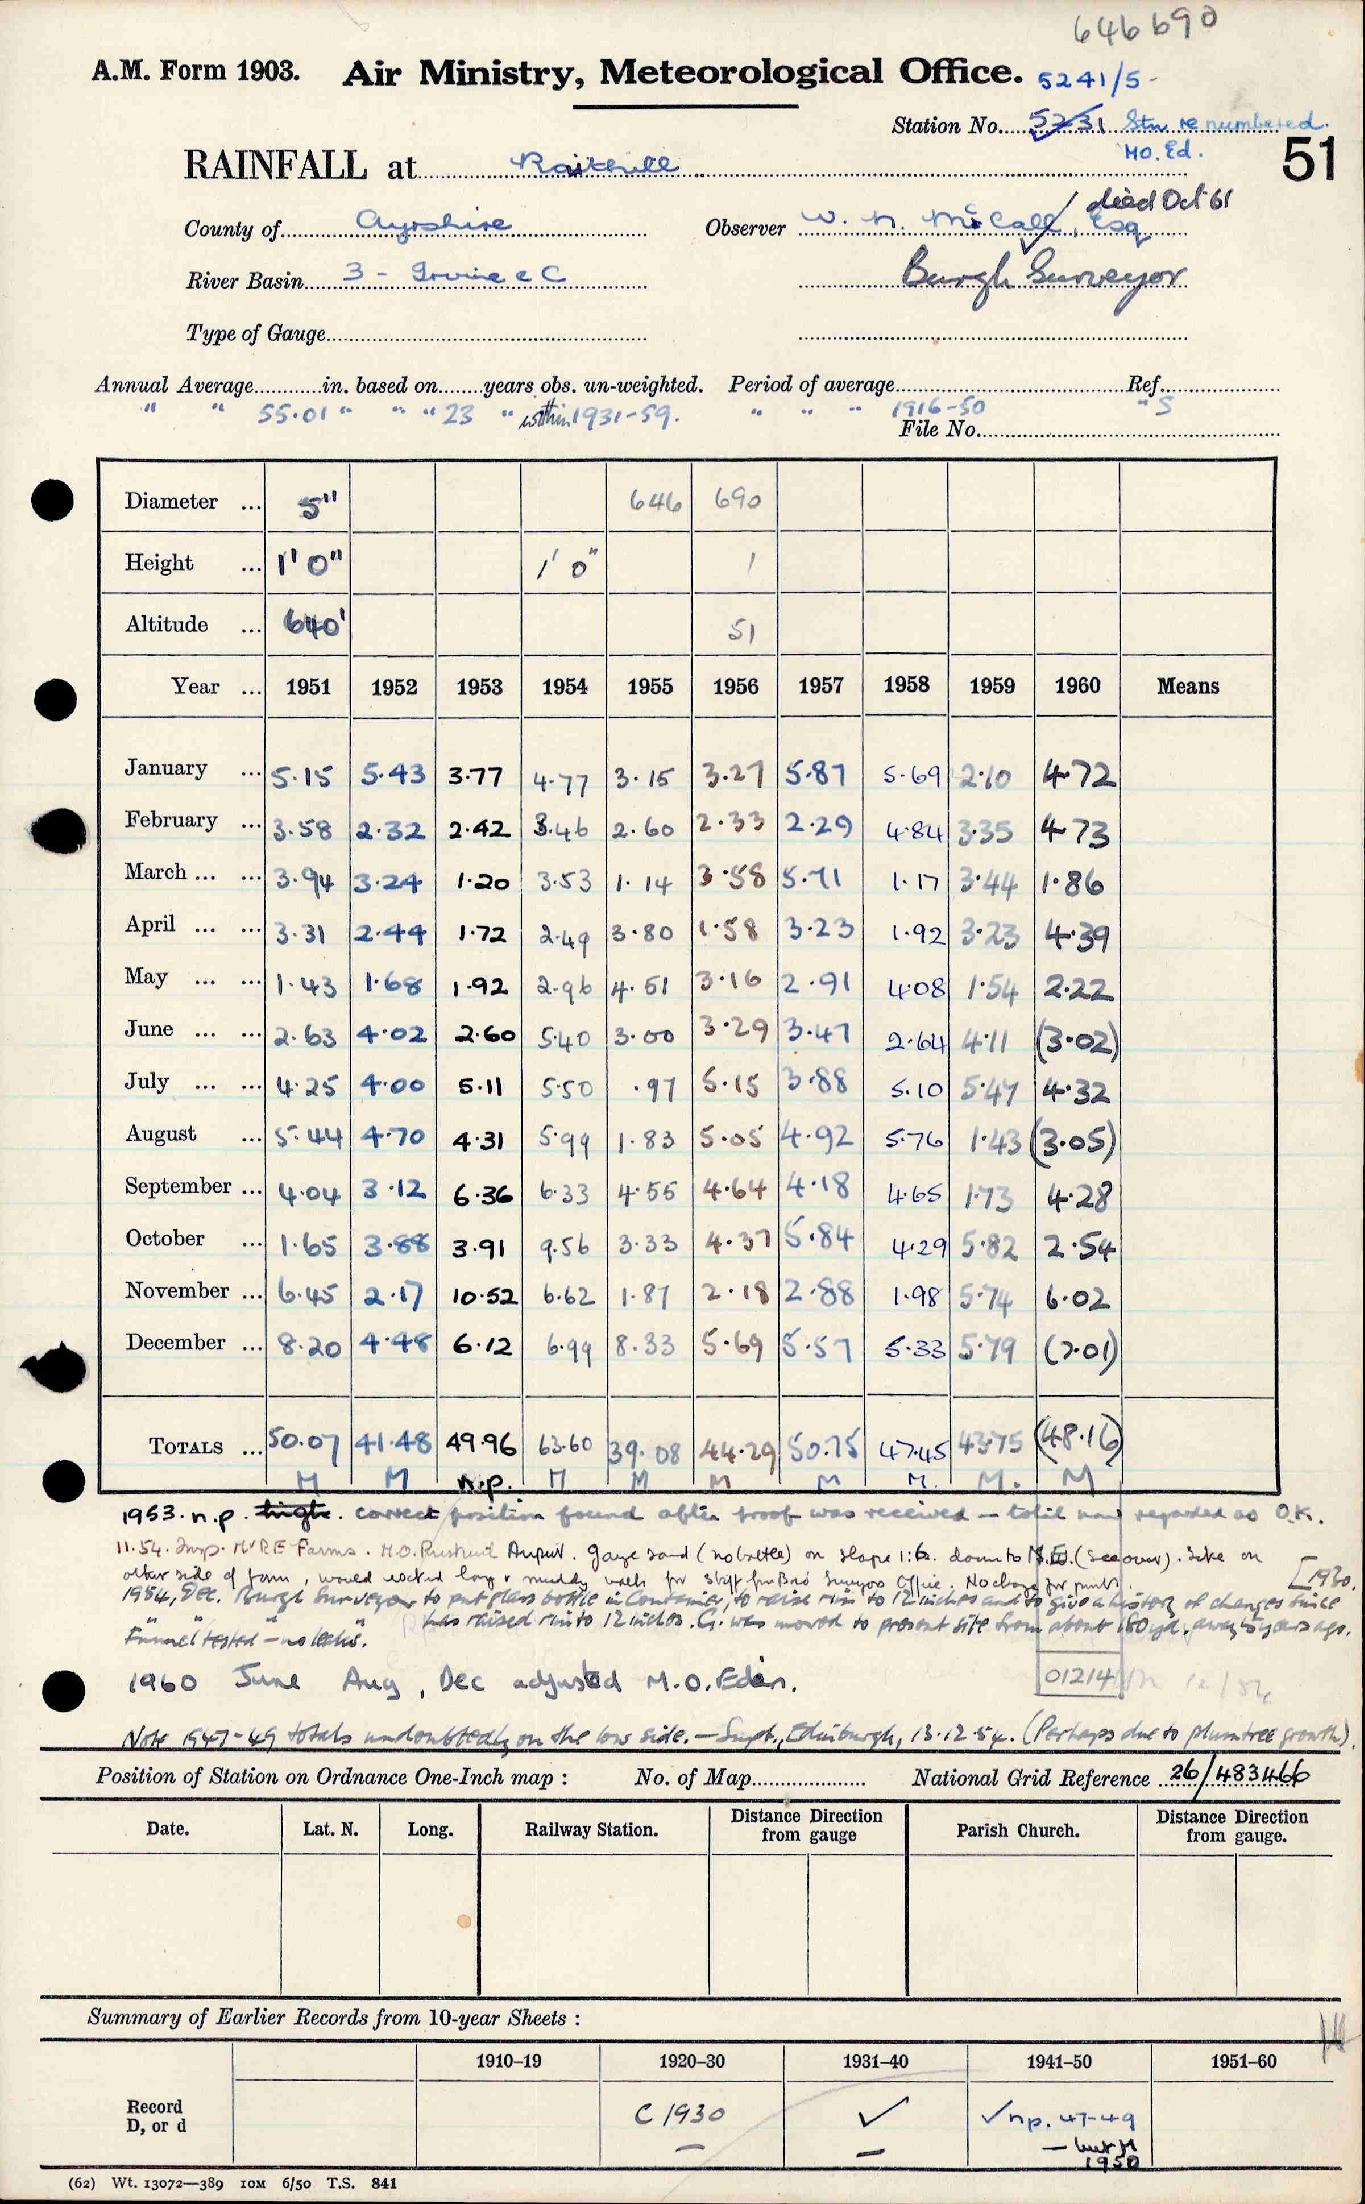 646690
A.M. Form 1903. Air Ministry, Meteorological Office. 5241/5
Station No. 5231 Stn renumbered.
MO. Ed.
51
RAINFALL at Raithill
died Oct 61
County of Ayrshire Observer W. N. McCall, Esq
River Basin 3 - Irvine & C Burgh Surveyor
Type of Gauge
Annual Average in. based on years obs. un-weighted. Period of average Ref.
" " 55.01 " " " 23 " within 1931-59. " " " 1916-50 " S
File No.
Diameter ... 5" 646 690
Height ... 1' 0" 1' 0" 1
Altitude ... 640' 51
Year ... 1951 1952 1953 1954 1955 1956 1957 1958 1959 1960 Means
January ... 5.15 5.43 3.77 4.77 3.15 3.27 5.87 5.69 2.10 4.72
February ... 3.58 2.32 2.42 3.46 2.60 2.33 2.29 4.84 3.35 4.73
March ... ... 3.94 3.24 1.20 3.53 1.14 3.58 5.71 1.17 3.44 1.86
April ... ... 3.31 2.44 1.72 2.49 3.80 1.58 3.23 1.92 3.23 4.39
May ... ... 1.43 1.68 1.92 2.96 4.51 3.16 2.91 4.08 1.54 2.22
June ... ... 2.63 4.02 2.60 5.40 3.00 3.29 3.47 2.64 4.11 (3.02)
July ... ... 4.25 4.00 5.11 5.50 .97 5.15 3.88 5.10 5.47 4.32
August ... 5.44 4.70 4.31 5.99 1.83 5.05 4.92 5.76 1.43 (3.05)
September ... 4.04 3.12 6.36 6.33 4.55 4.64 4.18 4.65 1.73 4.28
October ... 1.65 3.88 3.91 9.56 3.33 4.37 5.84 4.29 5.82 2.54
November ... 6.45 2.17 10.52 6.62 1.87 2.18 2.88 1.98 5.74 6.02
December ... 8.20 4.48 6.12 6.99 8.33 5.69 5.57 5.33 5.79 (7.01)
TOTALS ... 50.07 41.48 49.96 63.60 39.08 44.29 50.75 47.45 43.75 (48.16)
M M n.p. M M M M M. M. M
1953. n.p. high. correct position found after proof was received - total now regarded as O.K.
11.54. Insp. Mr R E Farms. M.O. Prestwick Airport. gauge sound (no bottle) on slope 1:6. down to (see over). Site on
other side of farm, would need long & muddy walk for staff from Bro' Surveyors Office. No change for . [1930.
1954, Dec. Burgh Surveyor to put glass bottle in container, to raise rim to 12 inches and to give a history of changes since
" " " " has raised rim to 12 inches. G. was moved to present site from about 180 yd. away 5 years ago.
Funnel tested - no leaks.
1960 June Aug, Dec adjusted M.O. Edin.
01214
Note 1947-49 totals undoubtedly on the low side. - Supt., Edinburgh, 13.12.54. (Perhaps due to plumtree growth).
Position of Station on Ordnance One-Inch map : No. of Map National Grid Reference 26/483466
Date. Lat. N. Long. Railway Station. Distance from gauge Direction Parish Church. Distance from gauge. Direction
Summary of Earlier Records from 10-year Sheets :
1910-19 1920-30 1931-40 1941-50 1951-60
Record D, or d C 1930 ✓ ✓ n.p. 47-49
1950
(62) Wt. 13072—389 10M 6/50 T.S. 841